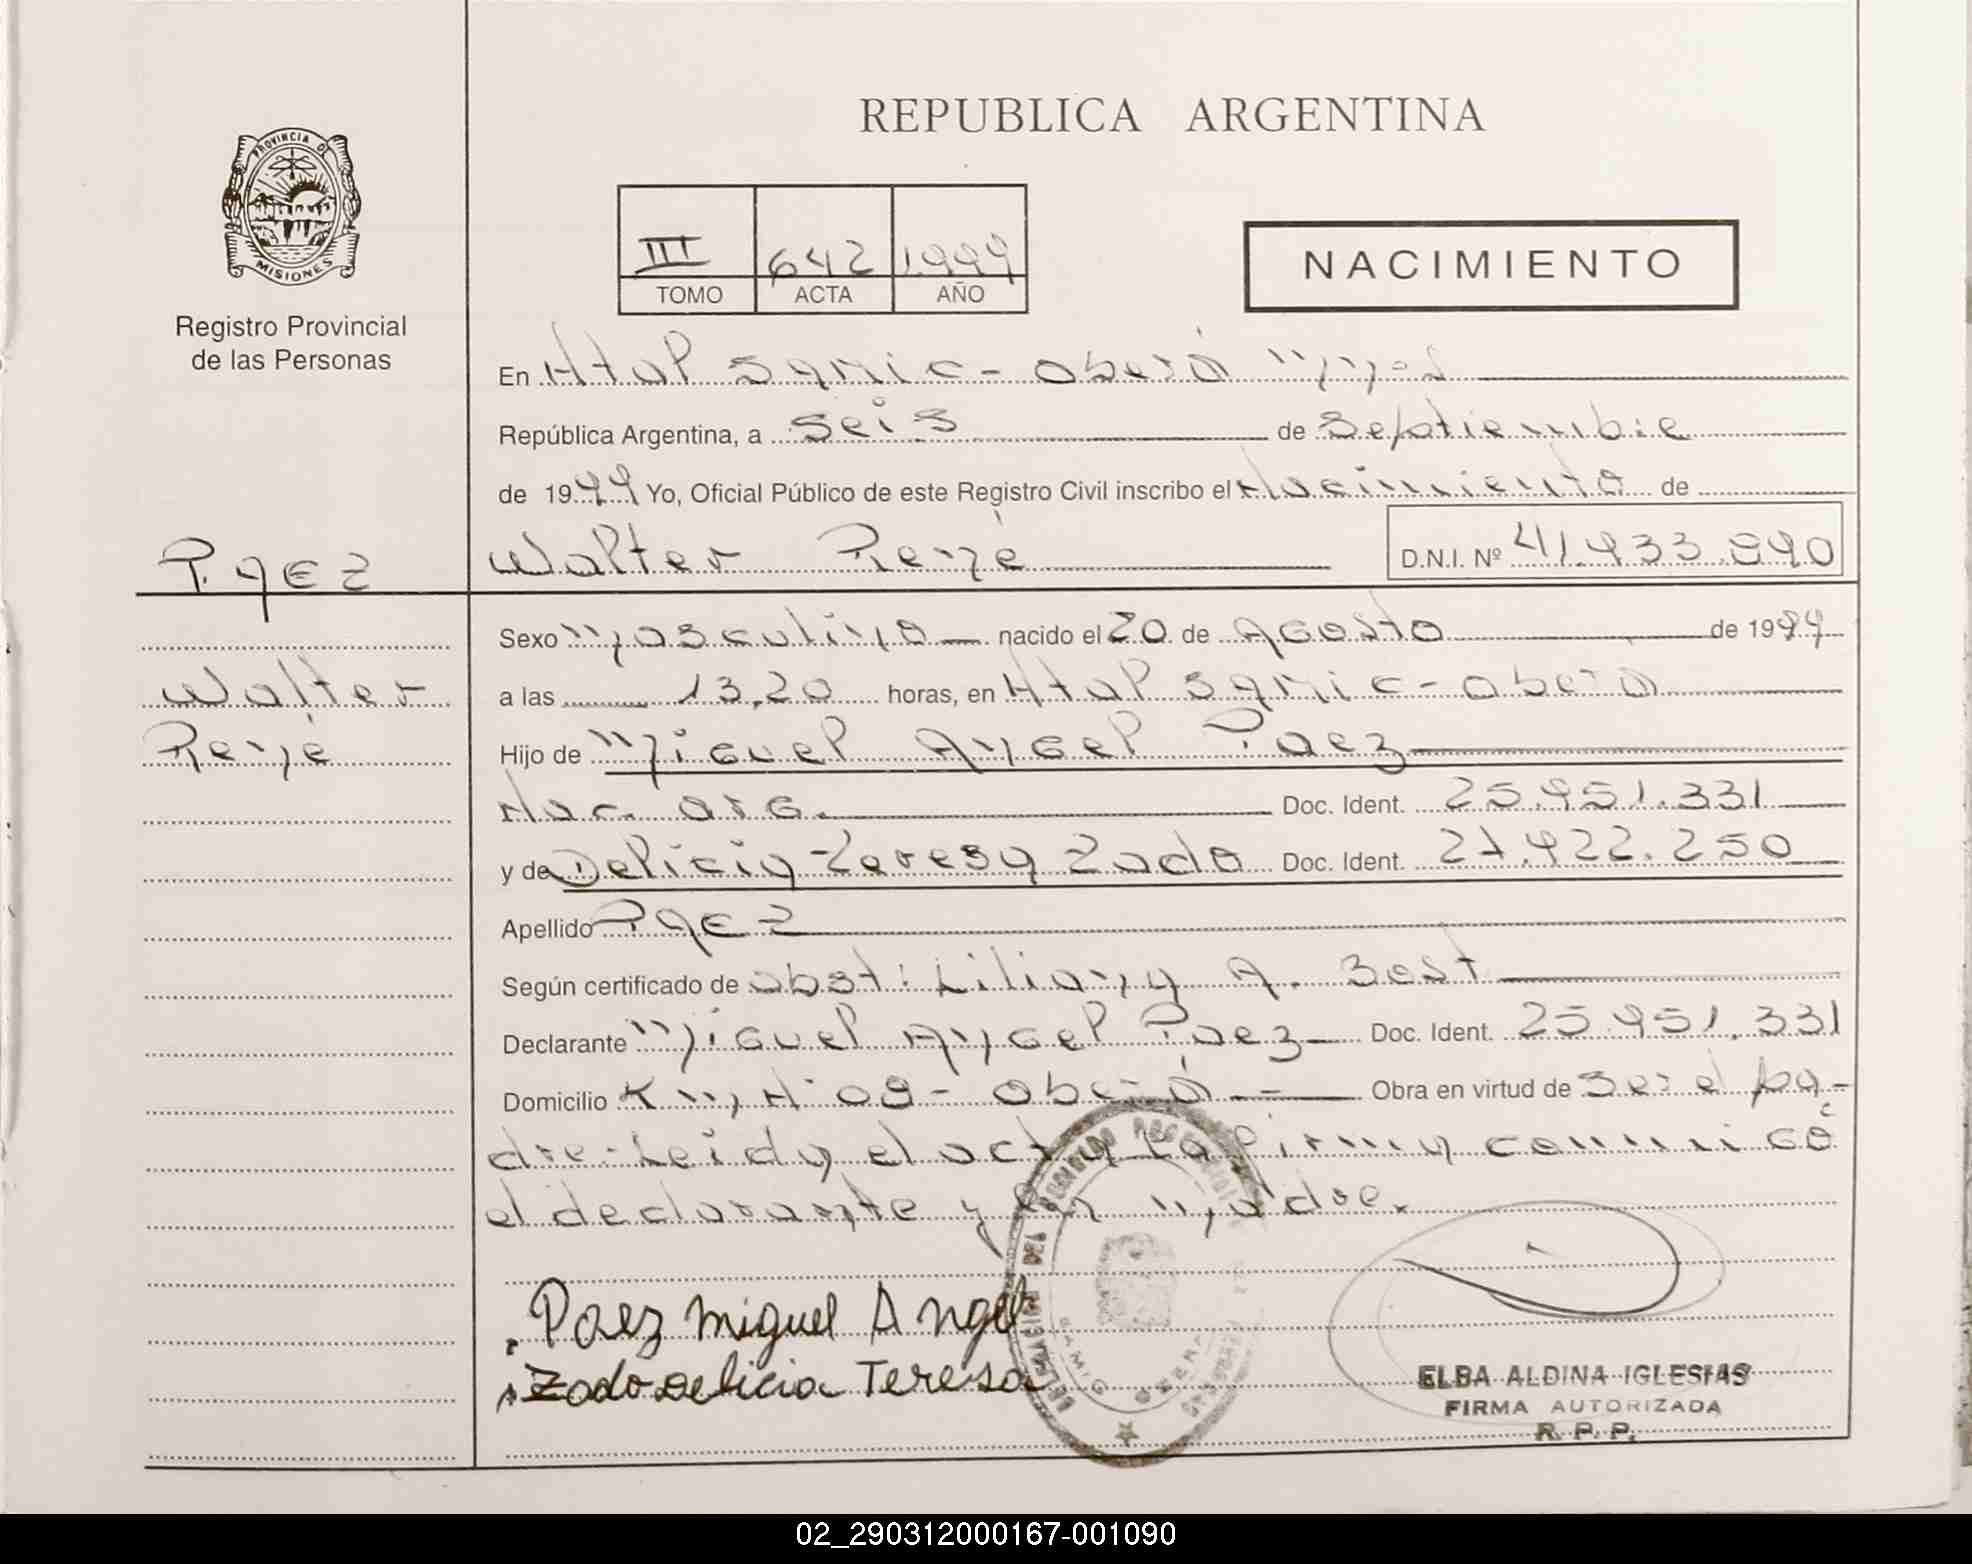 PROVINCIA DE
MISIONES
Registro Provincial
de las Personas
REPUBLICA ARGENTINA
III 642 1999
TOMO ACTA AÑO
NACIMIENTO
En Htal Samic - Oberá Mnes
República Argentina, a Seis de Septiembre
de 1999 Yo, Oficial Público de este Registro Civil inscribo el Nacimiento de
Paez
Walter René D.N.I. Nº 41.933.890
Walter
René
Sexo Masculino nacido el 20 de Agosto de 1999
a las 13,20 horas, en Htal Samic - Oberá
Hijo de Miguel Angel Paez
Nac. arg. Doc. Ident. 25.951.331
y de Delicia Teresa Zado Doc. Ident. 27.922.250
Apellido Paez
Según certificado de obst: Liliana A. Bost
Declarante Miguel Angel Paez Doc. Ident. 25.951.331
Domicilio Obera - Obra en virtud de Ser el pa-
dre - Leida el acta la firma conmigo
el declarante y la madre.
Paez Miguel Angel
Zado Delicia Teresa
ELBA ALDINA IGLESIAS
FIRMA AUTORIZADA
R. P. P.
02_290312000167-001090